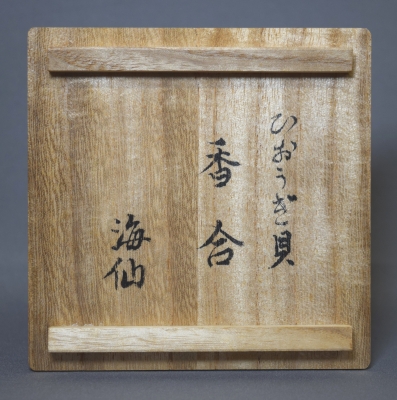 ひおうぎ貝
香合
海仙